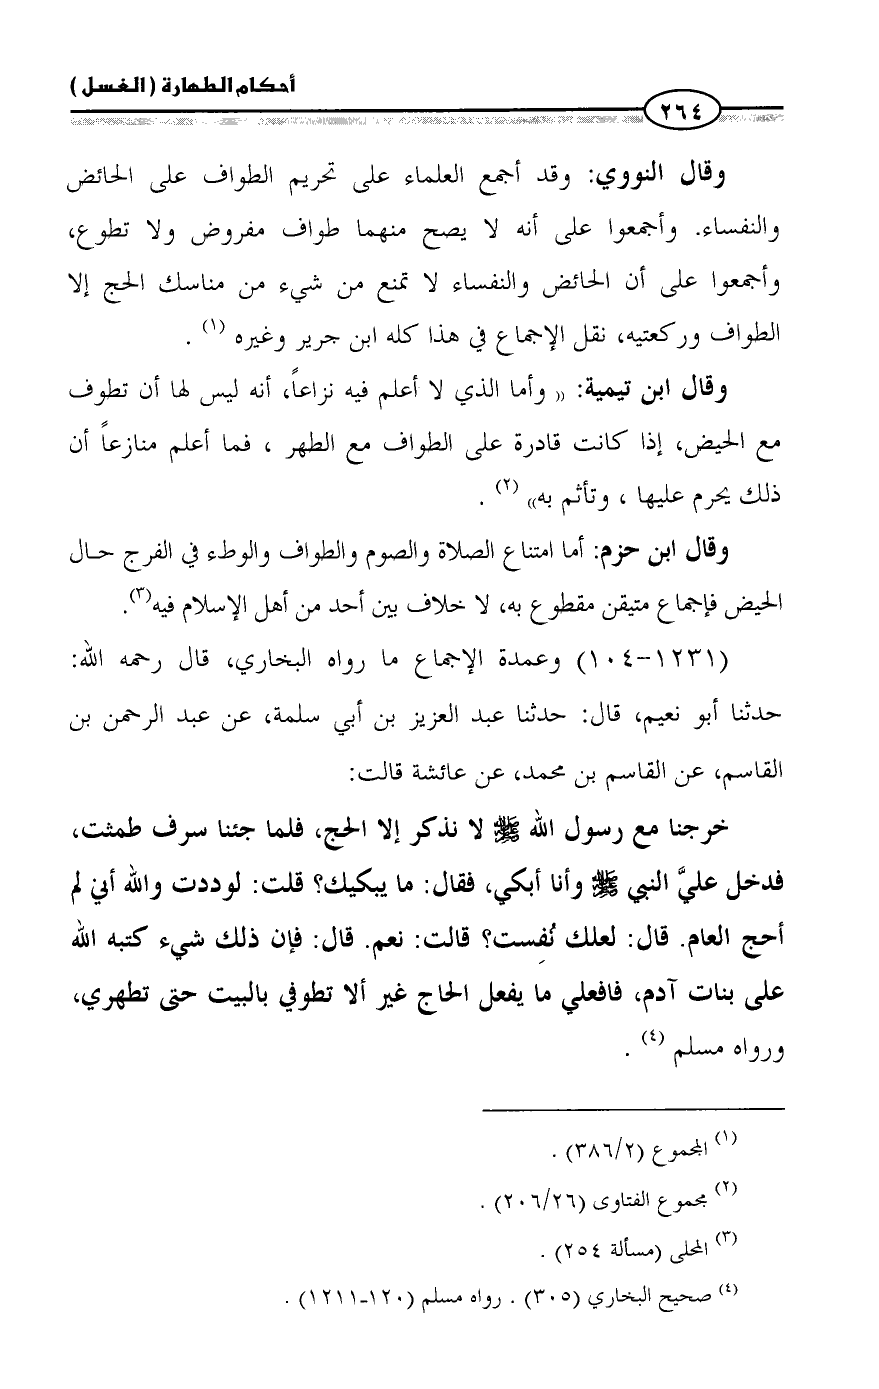 أحكام الطهارة (الغسل)
٢٦٤
وقال النووي: وقد أجمع العلماء على تحريم الطواف على الحائض
والنفساء. وأجمعوا على أنه لا يصح منهما طواف مفروض ولا تطوع،
وأجمعوا على أن الحائض والنفساء لا تمنع من شيء من مناسك الحج إلا
الطواف وركعتيه، نقل الإجماع في هذا كله ابن جرير وغيره (١) .
وقال ابن تيمية: « وأما الذي لا أعلم فيه نزاعاً، أنه ليس لها أن تطوف
مع الحيض، إذا كانت قادرة على الطواف مع الطهر ، فما أعلم منازعاً أن
ذلك يحرم عليها ، وتأثم به» (٢) .
وقال ابن حزم: أما امتناع الصلاة والصوم والطواف والوطء في الفرج حـال
الحيض فإجماع متيقن مقطوع به، لا خلاف بين أحد من أهل الإسلام فيه(٣).
(١٢٣١-١٠٤) وعمدة الإجماع ما رواه البخاري، قال رحمه الله:
حدثنا أبو نعيم، قال: حدثنا عبد العزيز بن أبي سلمة، عن عبد الرحمن بن
القاسم، عن القاسم بن محمد، عن عائشة قالت:
خرجنا مع رسول الله ﷺ لا نذكر إلا الحج، فلما جئنا سرف طمثت،
فدخل عليَّ النبي ﷺ وأنا أبكي، فقال: ما يبكيك؟ قلت: لوددت والله أني لم
أحج العام. قال: لعلك نُفِست؟ قالت: نعم. قال: فإن ذلك شيء كتبه الله
على بنات آدم، فافعلي ما يفعل الحاج غير ألا تطوفي بالبيت حتى تطهري،
ورواه مسلم (٤) .
(١) المجموع (٣٨٦/٢) .
(٢) مجموع الفتاوى (٢٠٦/٢٦) .
(٣) المحلى (مسألة ٢٥٤) .
(٤) صحيح البخاري (٣٠٥) . رواه مسلم (١٢٠-١٢١١) .